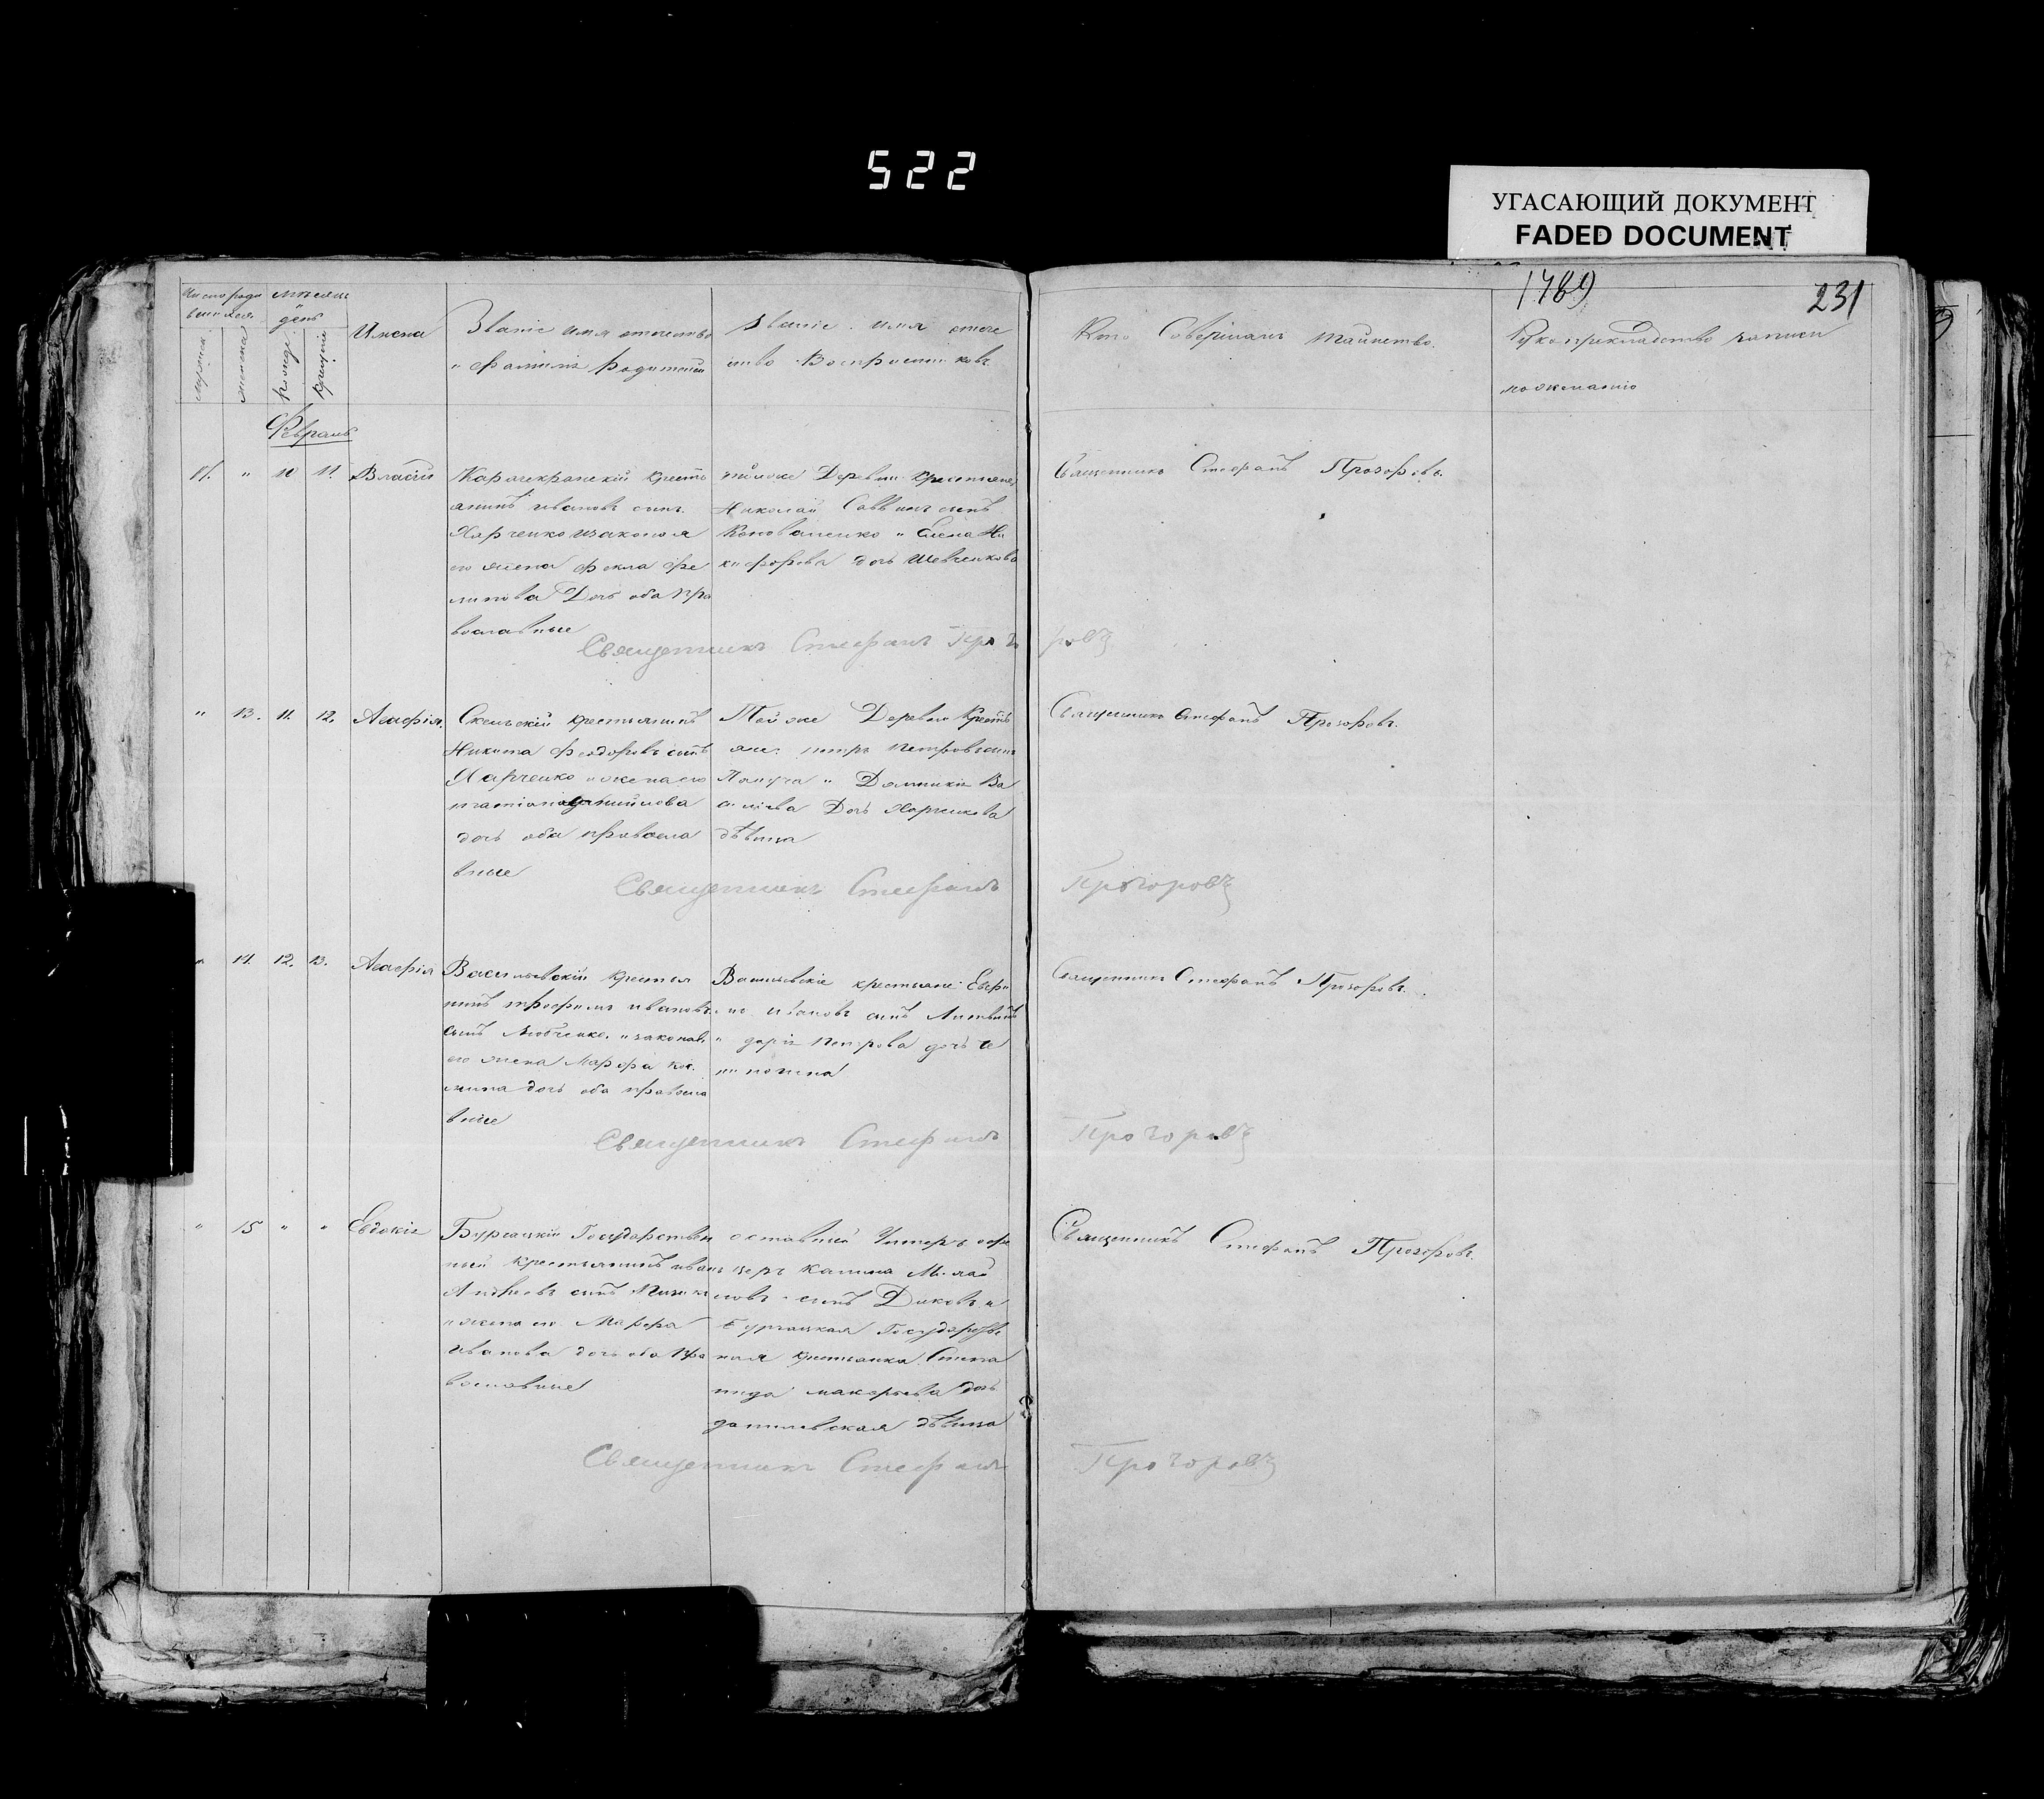 522
УГАСАЮЩИЙ ДОКУМЕНТ
FADED DOCUMENT
1789
231
Число роди
вшихся
мѣсяцъ
и
день
мужска
женска
рожде
крещенія
Имена
Званіе имя отчество
и фамилія родителей
Званіе имя отче
ство Воспріемниковъ
Кто Совершалъ таинство.
Рукоприкладство записи
по желанію
Февраль
11. " 10 11. Власій
Карачекракскій кресть
янинъ Ивановъ сынъ
Харченко и законая
его жена Фекла Фе
липова Дочь оба пра
вославные
тойже Деревни крестьяне
Николай Саввинъ сынъ
Коноваленко и Елена Ни
кифорова дочь Шевченкова
Священникъ Стефанъ Прозоровъ.
Священникъ Стефанъ Прозоровъ
" 13. 11. 12. Агафія.
Скельскій крестьянинъ
Никита Феодоровъ сынъ
Харченко и жена его
дочь оба правосла
вные
Той же Деревни Кресть
яне: петръ Петровъ сынъ
и Домникія Ва
силіева Дочь Харченкова
дѣвица
Священникъ Стефанъ Прозоровъ.
Священникъ Стефанъ Прозоровъ
" 14. 12. 13. Агафія
Васильевскій крестья
нинъ трофимъ ивановъ
сынъ Любченко. и законая
его жена Марфа Кос
мина дочь оба правосла
вные
Васильевскіе крестьяне: Евфи
мъ Ивановъ сынъ Литвинъ
и дарія Петрова дочь
Священникъ Стефанъ Прозоровъ.
Священникъ Стефанъ Прозоровъ
" 15 " " Евдокія
Бурчацкій Государствен
ный крестьянинъ иванъ
Андреевъ сынъ
и жена его Марфа
Иванова дочь оба пра
вославные
оставный Унтеръ офи
церъ Калина Михай
ловъ сынъ Диковъ и
Бурчацкая Государстве
ная крестьянка Степа
нида макарьева дочь
данилевская дѣвица
Священникъ Стефанъ Прозоровъ.
Священникъ Стефанъ Прозоровъ